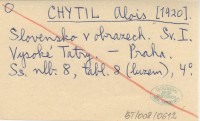 CHYTIL Alois [1920].
Slovensko v obrazech. Sv. I.
Vysoké Tatry. — Praha.
Ss. nlb. 8, tabl. 8 (luzem), 4°.
BT/008/0612